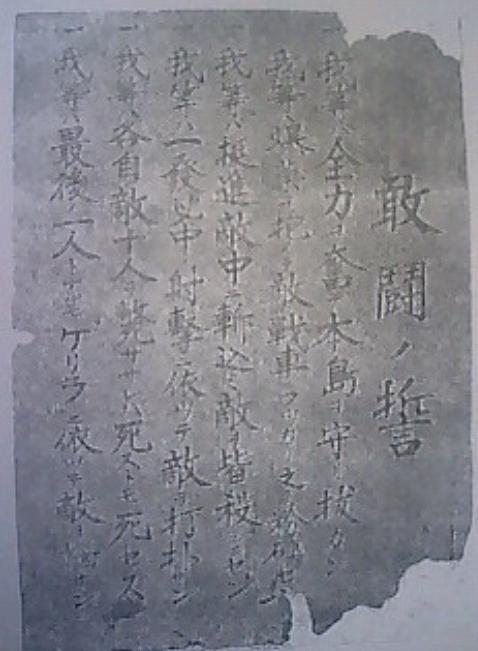 敢闘ノ誓
一 我等ハ全力ヲ奮テ本島ヲ守リ抜カン
我等ハ爆薬ヲ抱テ敵戦車ニブツカリ之ヲ粉砕セ
一 我等ハ挺進敵中ニ斬込ミ敵ヲ皆殺シニセン
一 我等ハ一發必中ノ射撃ニ依ツテ敵ヲ打扑サン
一 我等ハ各自敵十人ヲ斃サザレバ死ストモ死セズ
一 我等ハ最後ノ一人トナルモゲリラニ依ツテ敵ヲ悩マサン